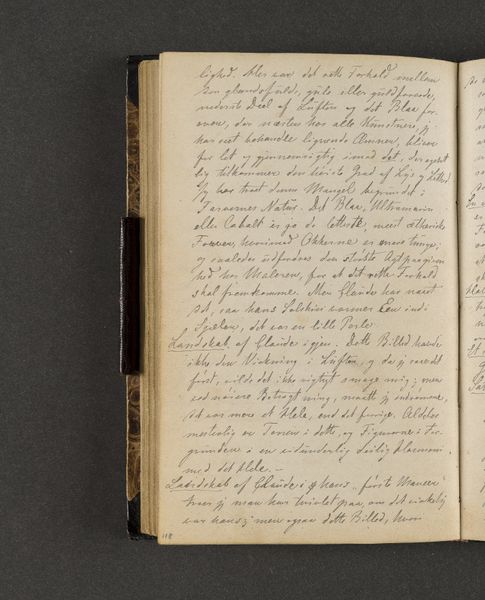 lighed. Her var det rette Forhold mellem
den glandsfulde, gule eller guldfarvede,
nederste Deel af Luften og det Blaa for-
oven, der næsten hos alle Kunstnere, jeg
har seet behandle lignende Æmner, bliver
for let og gjennemsigtig imod det, der egent-
lig tilkommer den høieste Grad af Lys og Lethed
Jeg har troet denne Mangel begrundet i
Farvernes Natur. Det Blaa, Ultramarin
eller Cobalt er jo de letteste, meest ætheriske
Farver, hvorimod Okkerne er mere tunge;
og saaledes udfordres den største Agtpaagiven
hed hos Maleren, for at det rette Forhold
skal fremkomme. Men Claude har naaet
det, saa hans Solskin varmer Een ind i
Sjælen, det var en lille Perle
Landskab af Claude igjen. Dette Billed havde
ikke den Virkning i Luften, og da jeg saae det
først, vilde det ikke rigtigt smage mig; men
ved nøiere Betragtning, maatte jeg indrømme,
at var mere et Hele, end det forrige. Aldeles
mesterlig er Tonen i dette, og Figurerne i For-
grunden i en vidunderlig deilig Harmoni
med det Hele. —
Landskab af Claude i hans første Maneer
hvor jeg man har tvivlet paa, om det virkelig
var hans; men ogsaa dette Billed, hvor
118